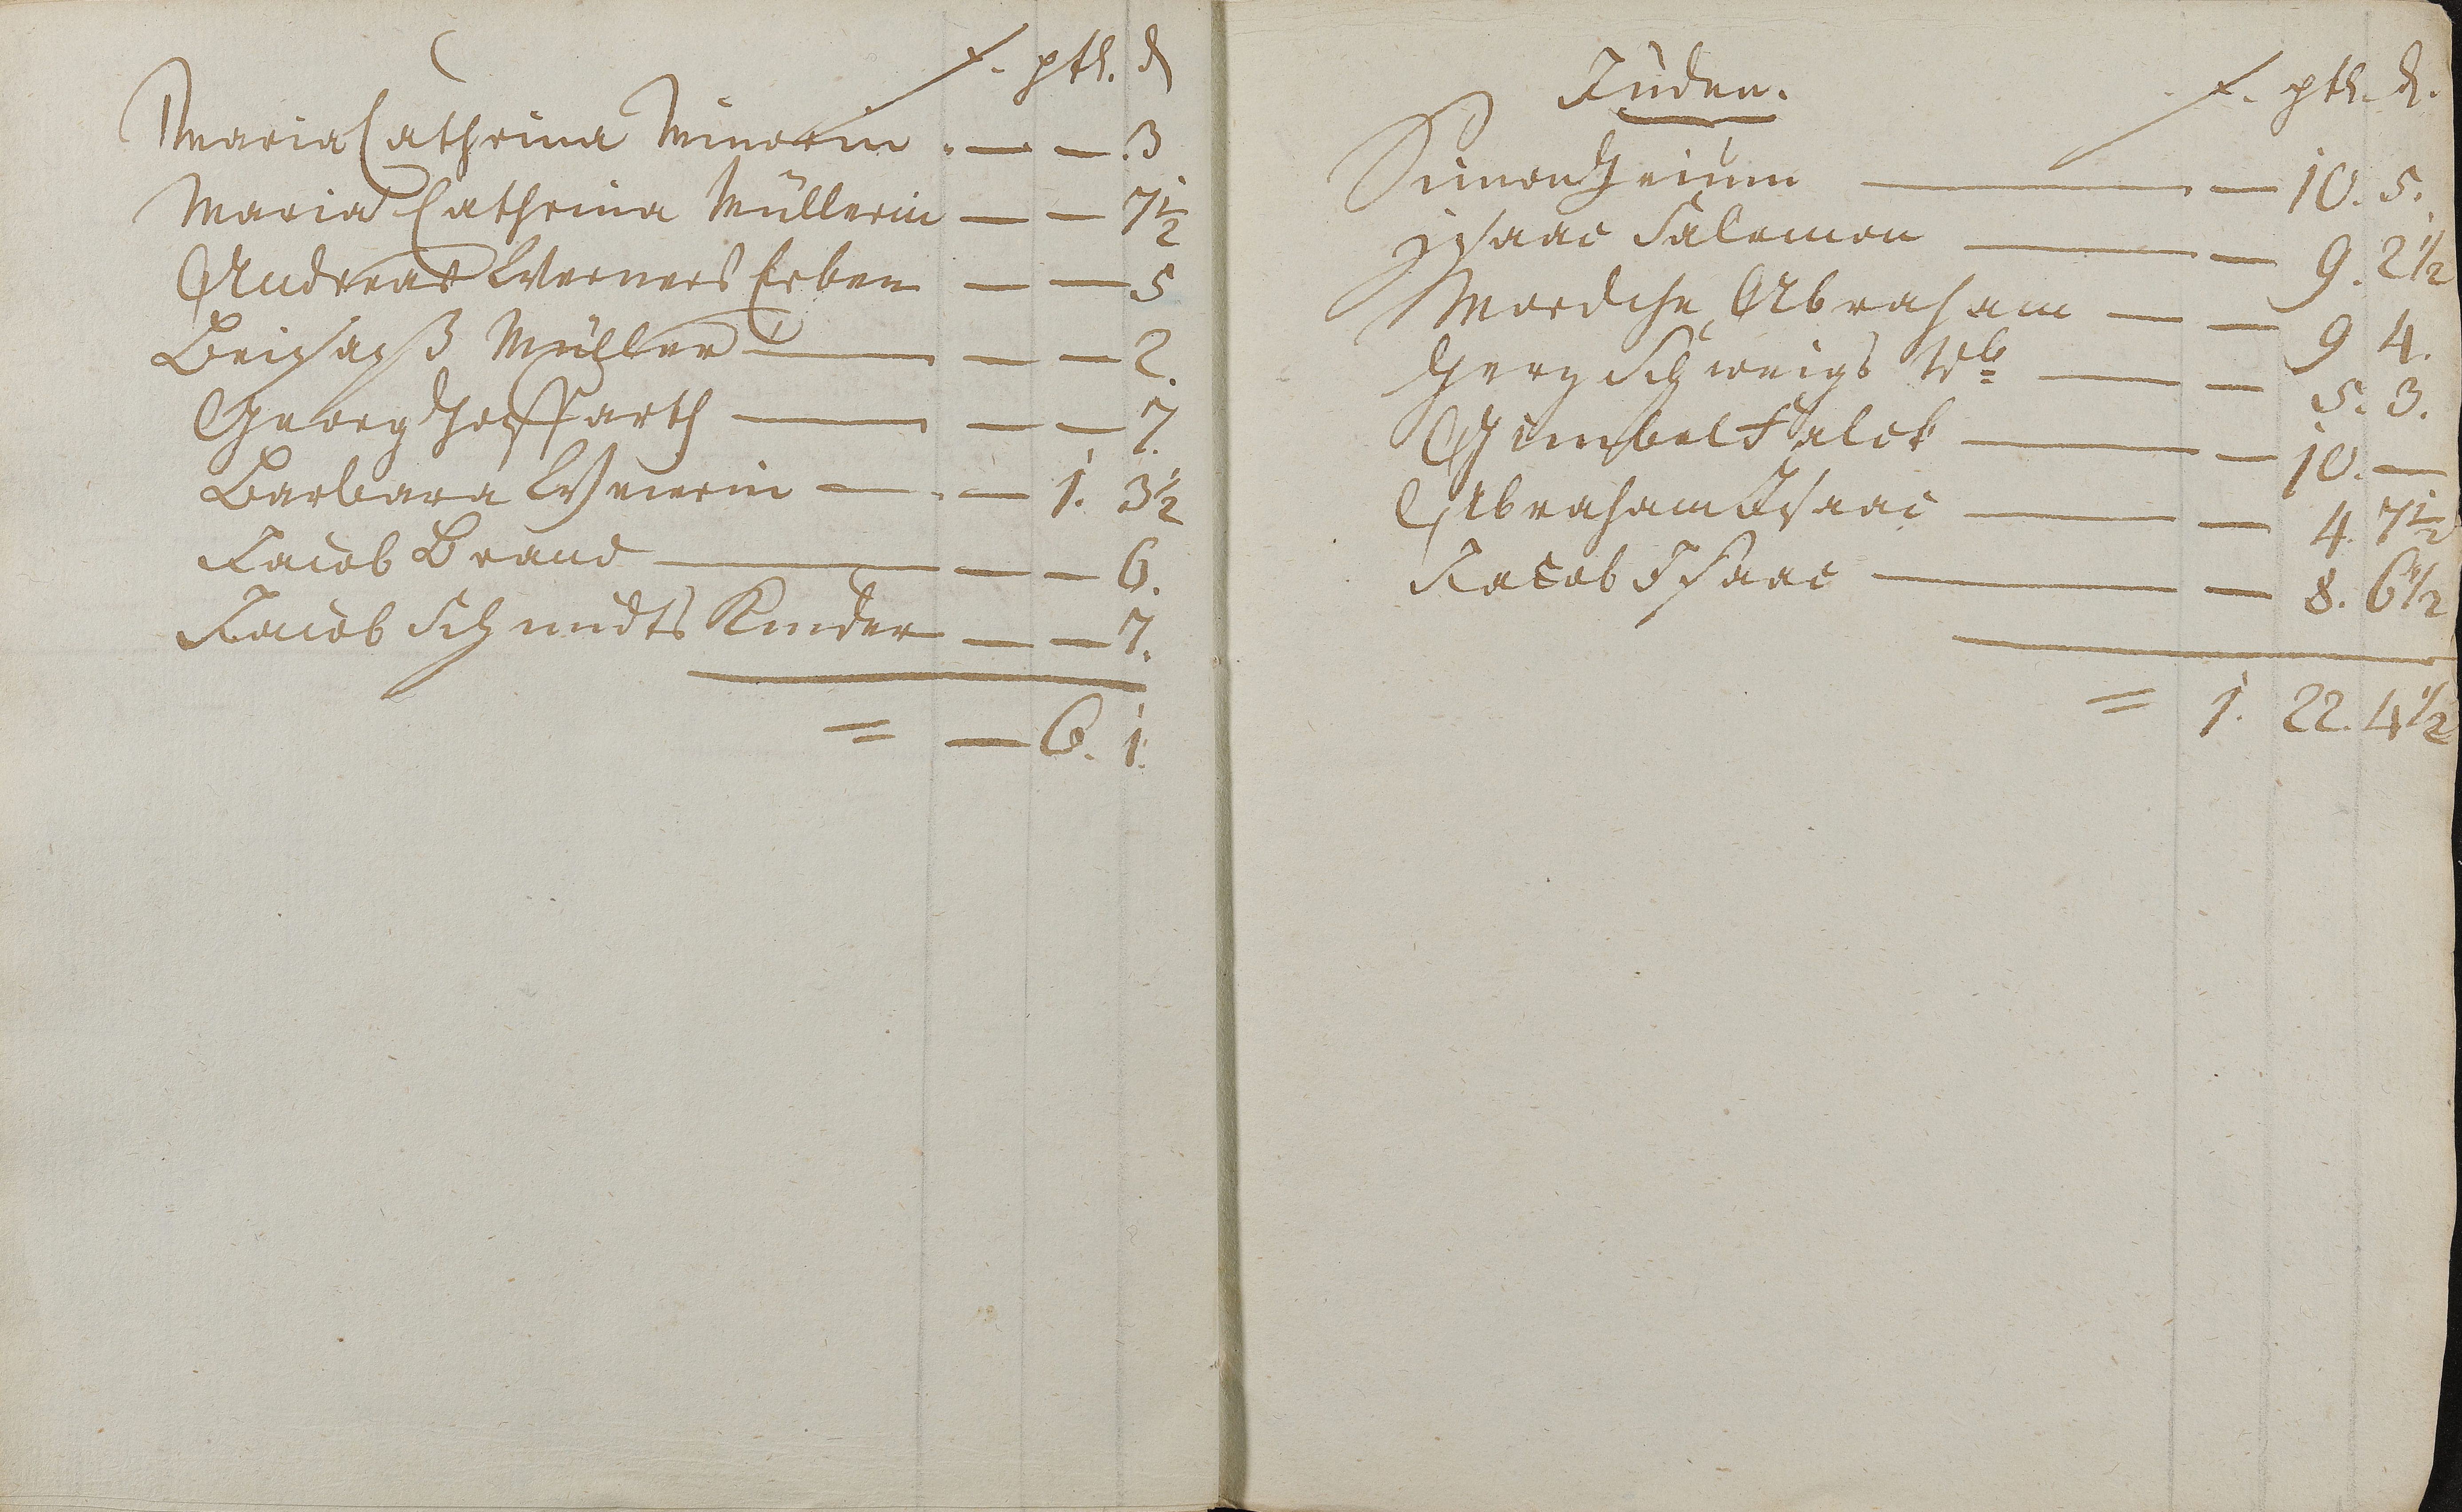 f. pth. d
Maria Cathrina Minorin . — — . 3
Maria Cathrina Müllerin — — 7 1/2
Andreas Werners Erben — — 5
Beisaß Müller — — — 2.
Georg Hoffarth — — — 7.
Barbara Weierin — . — 1. 3 1/2
Jacob Brand — — — 6.
Jacob Schmidts Kinder — — 7.
= — 6. 1.
Juden. f. pth. d.
Simon Heium — — 10. 5.
Isaac Salomon — — 9. 2 1/2
Mordche Abraham — — 9 4.
Herz Schweigs Wb — — 5. 3.
Gimbel Falck — — 10. —
Abraham Isaac — — 4. 7 1/2
Jacob Isaac — — 8. 6 1/2
= 1. 22. 4 1/2